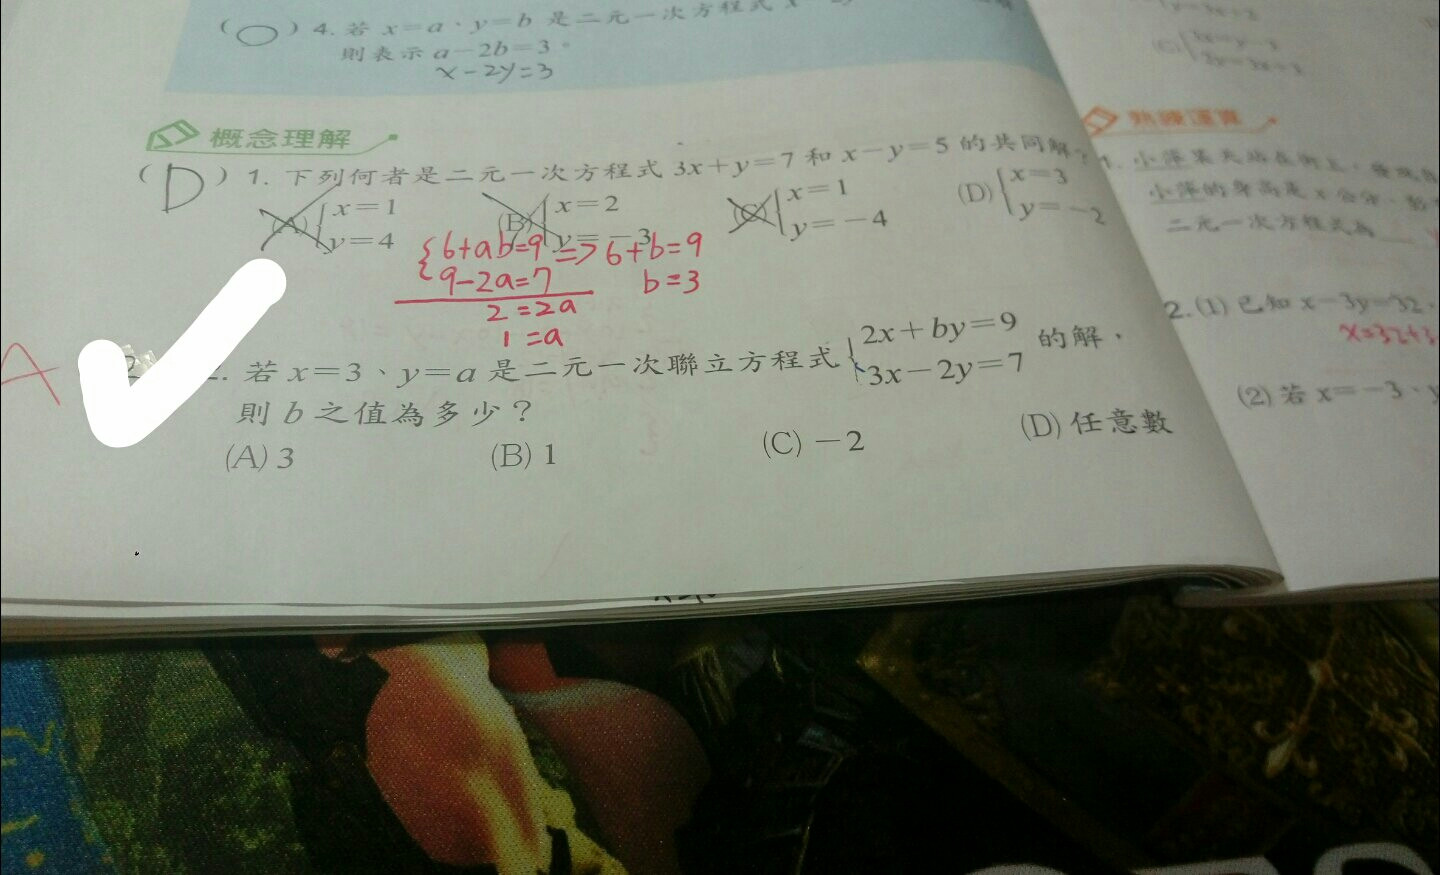 (○) 4. 若 x=a、y=b 是二元一次方程式
則表示 a-2b=3。
x-2y=3
概念理解
(D) 1. 下列何者是二元一次方程式 3x+y=7 和 x-y=5 的共同解?
(A) { x=1 y=4 (B) { x=2 y=-3 (C) { x=1 y=-4 (D) { x=3 y=-2
{ 6+ab=9 => 6+b=9
9-2a=7 b=3
2=2a
1=a
A
2. 若 x=3、y=a 是二元一次聯立方程式 { 2x+by=9 3x-2y=7 的解,
則 b 之值為多少?
(A) 3 (B) 1 (C) -2 (D) 任意數
熟練運算
1. 小萍某天站在街上,
小萍的身高是 x 公分,
二元一次方程式為
2. (1) 已知 x-3y=32,
x=32+3
(2) 若 x=-3、y